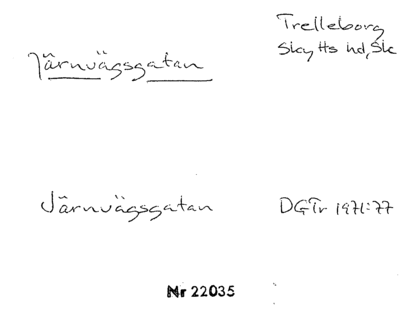 Trelleborg
Skytts hd, Sk
Järnvägsgatan
Järnvägsgatan DGTr 1971:77
Nr 22035